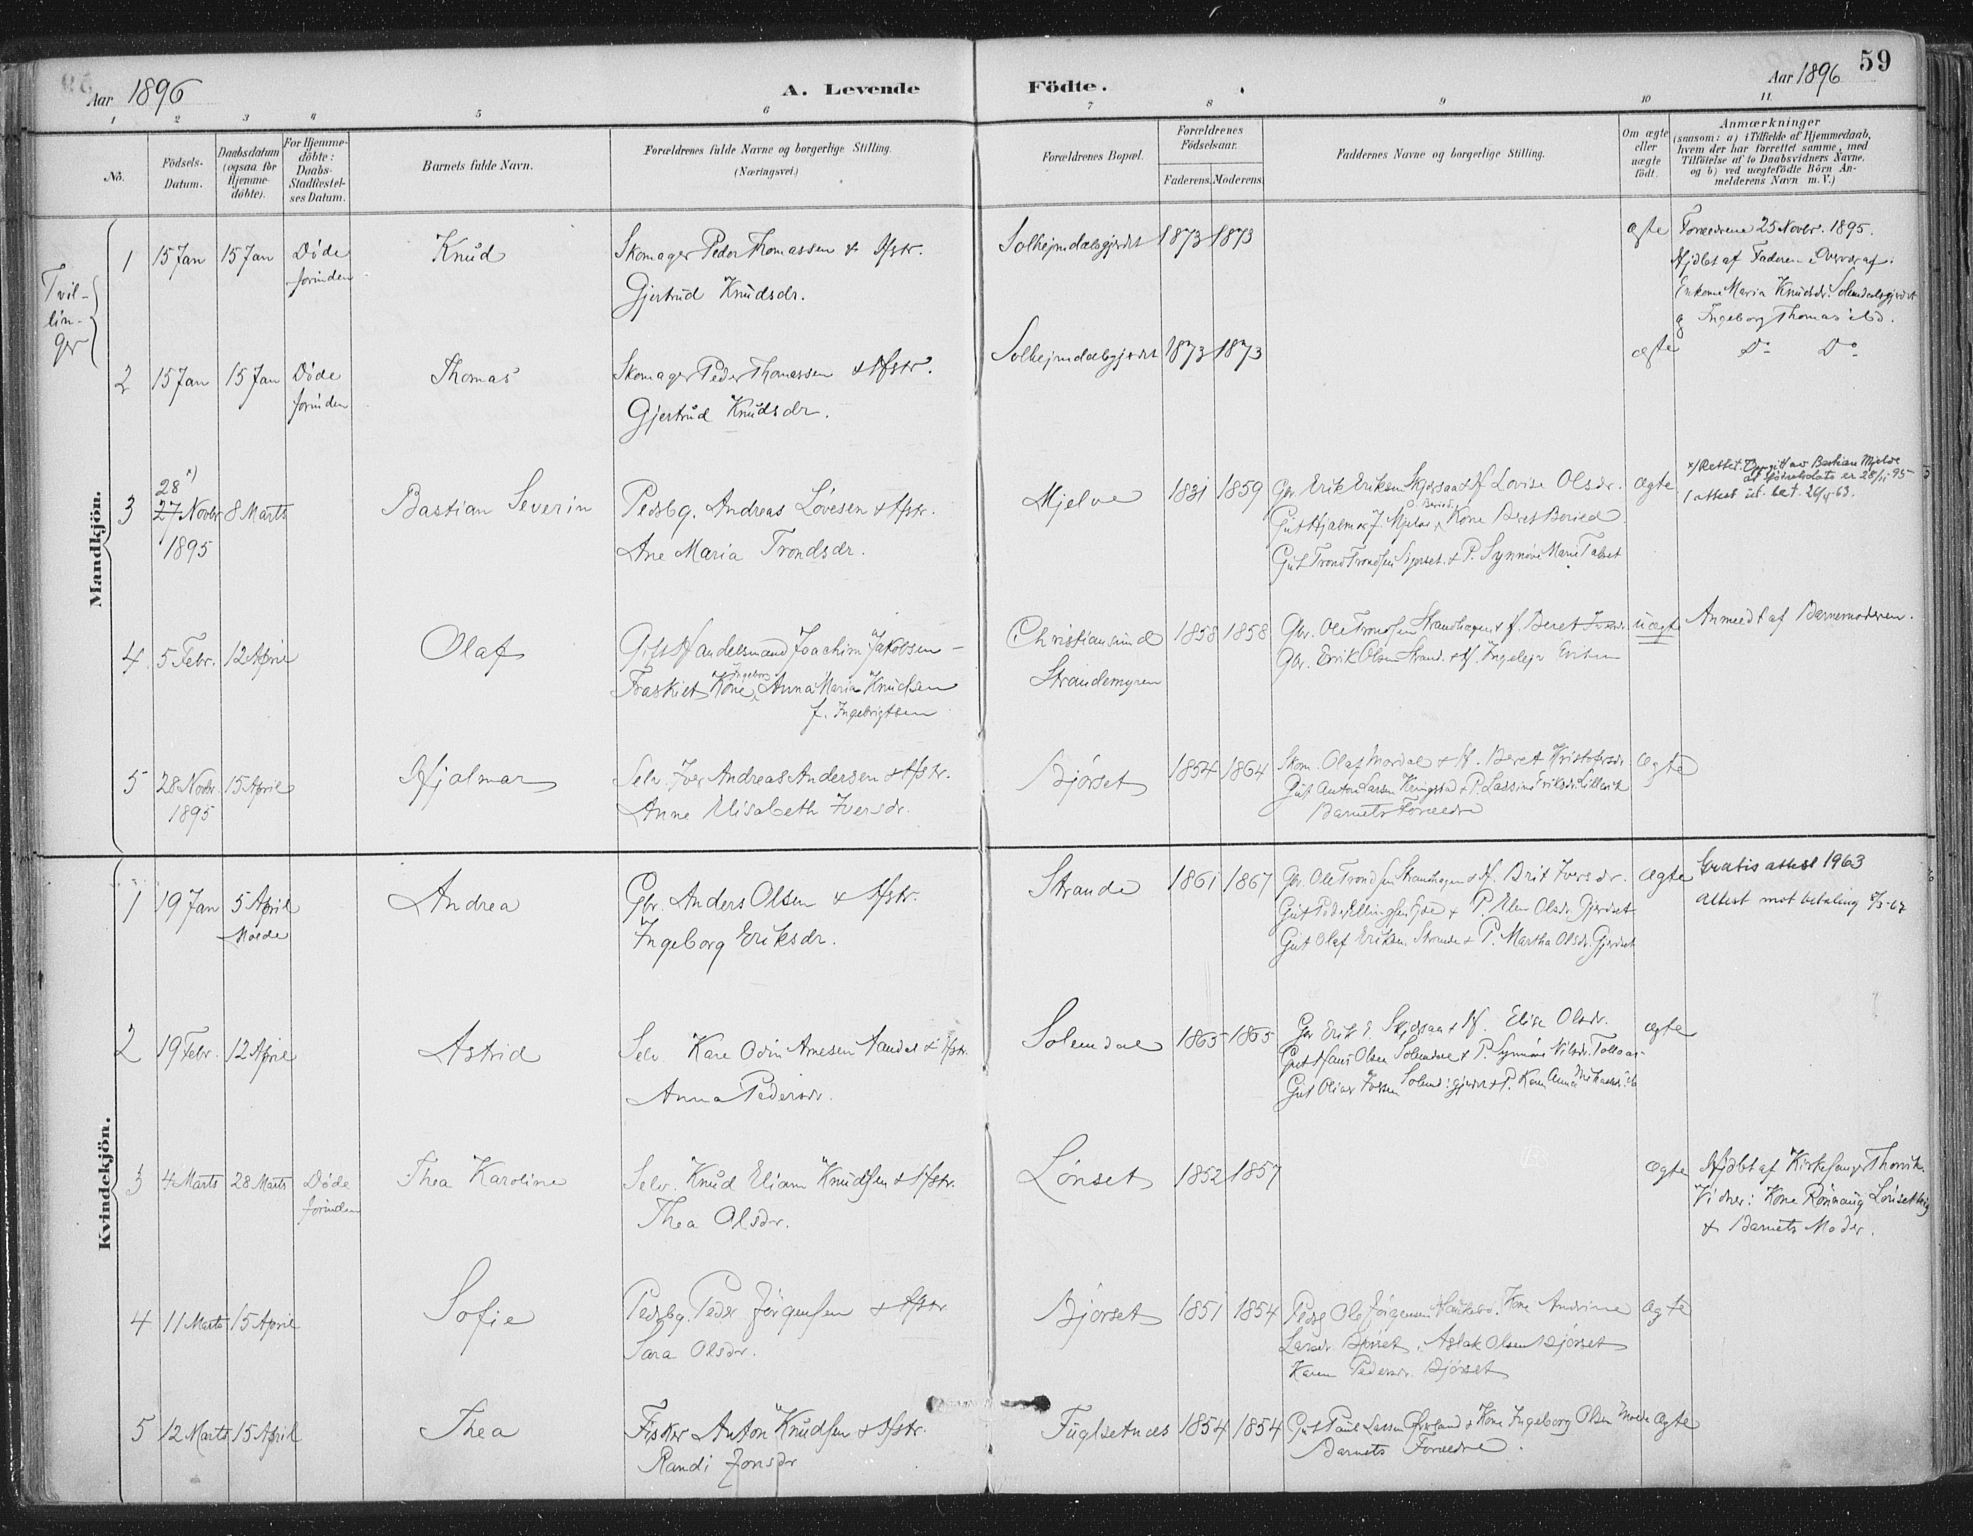 59
Aar 1896
A. Levende Födte.
Aar 1896
1 2 3 4 5 6 7 8 9 10 11.
No.
Födsels-Datum.
Daabsdatum (ogsaa for Hjemme-döbte).
For Hjemme-döbte: Daabs-Stadfæstel-ses Datum.
Barnets fulde Navn.
Forældrenes fulde Navne og borgerlige Stilling.
(Næringsvei.)
Forældrenes Bopæl.
Forældrenes Födselsaar.
Faderens. Moderens.
Faddernes Navne og borgerlige Stilling.
Om ægte eller uægte födt.
Anmærkninger
(saasom: a) i Tilfælde af Hjemmedaab, hvem der har forrettet samme, med Tilföielse af to Daabsvidners Navne, og b) ved uægtefödte Börn An-melderens Navn m. V.)
Mandkjön.
Tvil-
lin-
ger
1 15 Jan 15 Jan Døde forinden Knud Skomager Peder Thomassen & Hstr.
Gjertrud Knudsdr.
Solhejmdalsgjerdet 1873 1873 ægte Forældrene 25 Novbr. 1895.
Hjdbt af Faderen i Overvær af
Enkone Maria Knudsdr.
Ingeborg Thomas
2 15 Jan 15 Jan Døde forinden Thomas Skomager Peder Thomassen & Hstr.
Gjertrud Knudsdr.
Solhejmdalsgjerdet 1873 1873 ægte Do Do
3 28 x) 27 Novbr 1895 8 Marts Bastian Severin Pedsbg. Andreas Løvesen & Hstr.
Ane Maria Trondsdr.
Mjelve 1831 1859 Gbr. Erik Eriksen & H. Lovise Olsdr. ægte
Gut Hjalmar J. Mjelve, Kone Beret Boried
Gut Trond Trondsen & P. Synnøve Marie
x) Rettet. Bastian Mjelve
at fødselsdato er 28/11 95
1 attest ut. bet. 26/5-63.
4 5 Febr. 12 April Olaf Gift Handelsmand Joachim Jakobsen -
Fraskilt Kone Ingeborg Anna Maria Knudsen
f. Ingebrigtsen
Christiansund
Strandemyren
1858 1858 Gbr. Ole Trondsen Strandhagen & H. Beret uægte Anmeldt af Barnemoderen.
Gbr. Erik Olsen Strand. & H.
5 28 Novbr. 1895 15 April Hjalmar Selv. Iver Andreas Andersen & Hstr.
Anne Elisabeth Iversdr.
Bjørset 1854 1864 Skom. Olaf & H. Beret ægte
Gut Anton Larsen
Barnets Forældre
Kvindekjön.
1 19 Jan 5 April Molde Andrea Gbr. Anders Olsen & Hstr.
Ingeborg Eriksdr.
Strande 1861 1867 Gbr. Ole Trondsen Strandhagen & H. Brit Iversdr. ægte Gratis attest 1963
Gut Peder & P. Elen Olsdr. Gjerdset
attest mot betaling
Gut Olaf Eriksen Strande & P. Martha Olsdr. Gjerdset
2 19 Febr. 12 April Astrid Selv Kare Odin Arnesen & Hstr.
Anna Pedersdr.
Solemdal 1865 1865 Gbr Erik E. & H. Elise Olsdr. ægte
Gut Hans Olsen Solemdal & P. Synnøve Nilsdr.
3 4 Marts 28 Marts Døde forinden Thea Karoline Selv. Knud Eliam Knudsen & Hstr.
Thea Olsdr.
Lønset 1852 1857 ægte Hjdbt af Kirkesanger Thorvik.
Vidner: Kone Rønnaug
& Barnets Moder.
4 11 Marts 15 April Sofie Pedsbg. Peder Jørgensen & Hstr
Sara Olsdr.
Bjørset 1851 1854 Pedsbg Ole Jørgensen, Kone Andrine ægte
Larsdr. Bjørset, Aslak Olsen Bjørset
Karen Pedersdr. Bjørset
5 12 Marts 15 April Thea Fisker Anton Knudsen & Hstr.
Randi Jonsdr
Fuglsetnes 1854 1854 Gut Paul Larsen & Kone Ingeborg Olsen Molde ægte
Barnets Forældre.